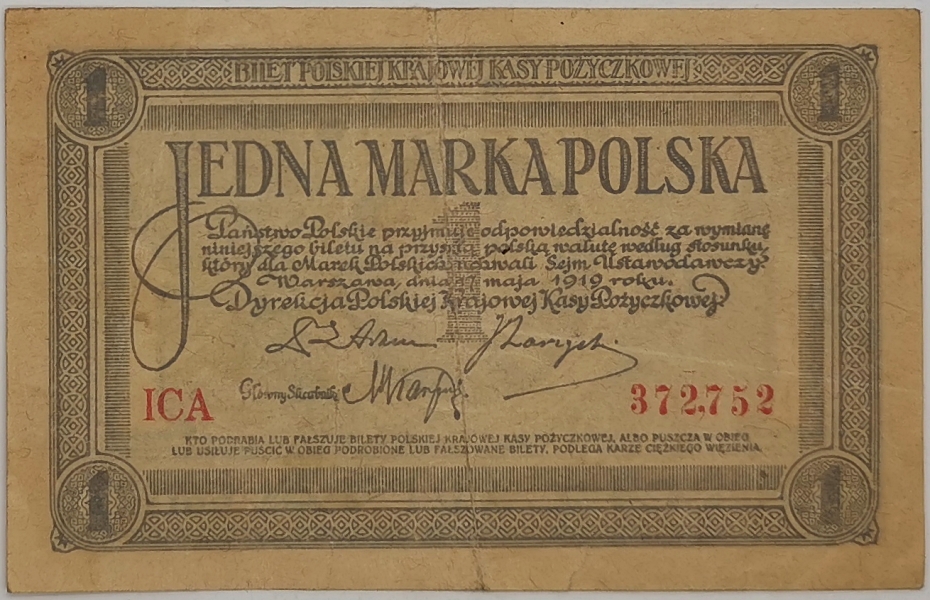 BILET POLSKIEJ KRAJOWEJ KASY POŻYCZKOWEJ
1 1
JEDNA MARKA POLSKA
1
Państwo Polskie przyjmuje odpowiedzialność za wymianę
niniejszego biletu na przyszłą polską walutę według stosunku,
który dla Marek Polskich uchwali Sejm Ustawodawczy.
Warszawa, dnia 17 maja 1919 roku.
Dyrekcja Polskiej Krajowej Kasy Pożyczkowej
Główny Skarbnik
ICA 372,752
KTO PODRABIA LUB FAŁSZUJE BILETY POLSKIEJ KRAJOWEJ KASY POŻYCZKOWEJ, ALBO PUSZCZA W OBIEG
LUB USIŁUJE PUŚCIĆ W OBIEG PODROBIONE LUB FAŁSZOWANE BILETY, PODLEGA KARZE CIĘŻKIEGO WIĘZIENIA.
1 1